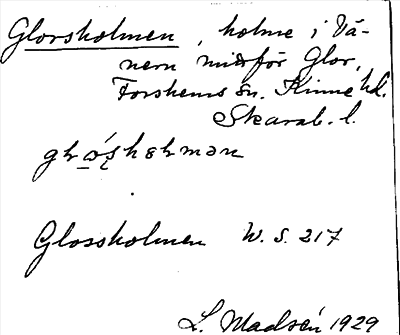 Glorsholmen, holme i Vä-
nern mitför Glor,
Forshems sn. Kinne hd.
Skarab. l.
Glossholmen W. S. 217
L. Madsén 1929